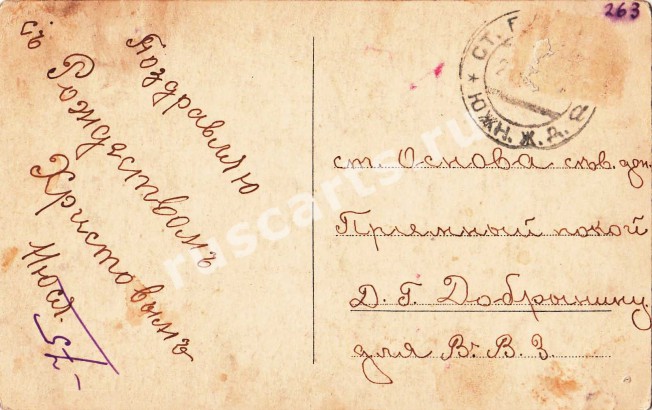 Поздравляю
съ Рождествомъ
Христовымъ
Нюся.
57-
263
СТ. Г
ЮЖН. Ж. Д.
а
ст. Основа сѣв. дон.
Приемный покой
Д. Г. Добрынину
для В. В. З.
ruscarts.ru